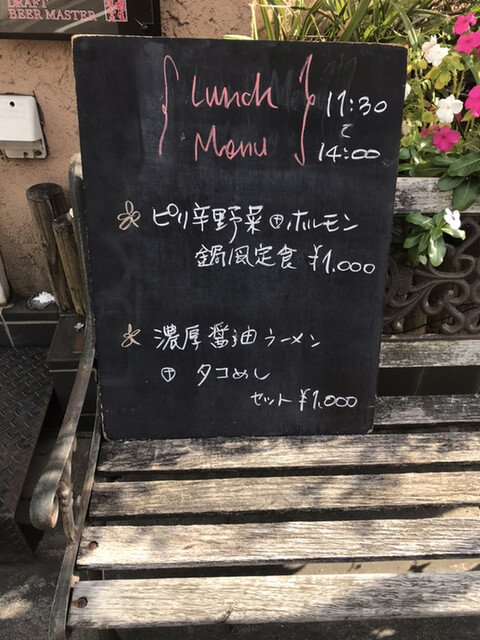 DRAFT
BEER MASTER
Lunch
Menu
11:30
〜
14:00
ピリ辛野菜⊕ホルモン
鍋風定食 ¥1,000
濃厚醤油ラーメン
⊕ タコめし
セット ¥1,000